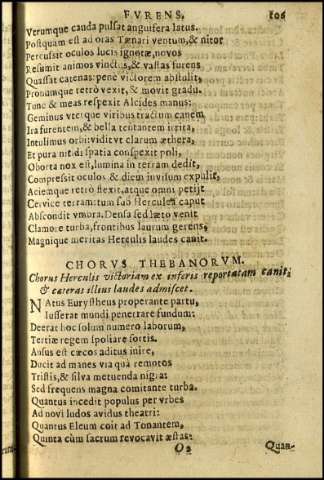 FVRENS, 106
Verumque cauda pulsat anguifera latus.
Postquam est ad oras Tænari ventum, & nitor
Percussit oculos lucis ignotæ, novos
Resumit animos vinctus, & vastas furens
Quassat catenas: pene victorem abstulit,
Pronumque retrò vexit, & movit gradu.
Tunc & meas respexit Alcides manus:
Geminis vterque viribus tractum canem
Ira furentem, & bella tentantem irrita,
Intulimus orbi: vidit vt clarum æthera,
Et pura nitidi spatia conspexit poli,
Oborta nox est, lumina in terram dedit,
Compressit oculos & diem invisum expulit,
Aciemque retrò flexit, atque omni petijt
Cervice terram: tum sub Herculea caput
Abscondit vmbra. Densa sed læto venit
Clamore turba, frontibus laurum gerens,
Magnique meritas Herculis laudes canit.
CHORVS THEBANORVM.
Chorus Herculis victoriam ex inferis reportatam canit;
& cæteras illius laudes admiscet.
NAtus Eurystheus properante partu,
Iusserat mundi penetrare fundum:
Deerat hoc solum numero laborum,
Tertiæ regem spoliare sortis.
Ausus est cæcos aditus inire,
Ducit ad manes via quà remotos
Tristis, & silva metuenda nigra:
Sed frequens magna comitante turba.
Quantus incedit populus per vrbes
Ad novi ludos avidus theatri:
Quantus Eleum coit ad Tonantem,
Quinta cùm sacrum revocavit æstas:
O 2 Quan-